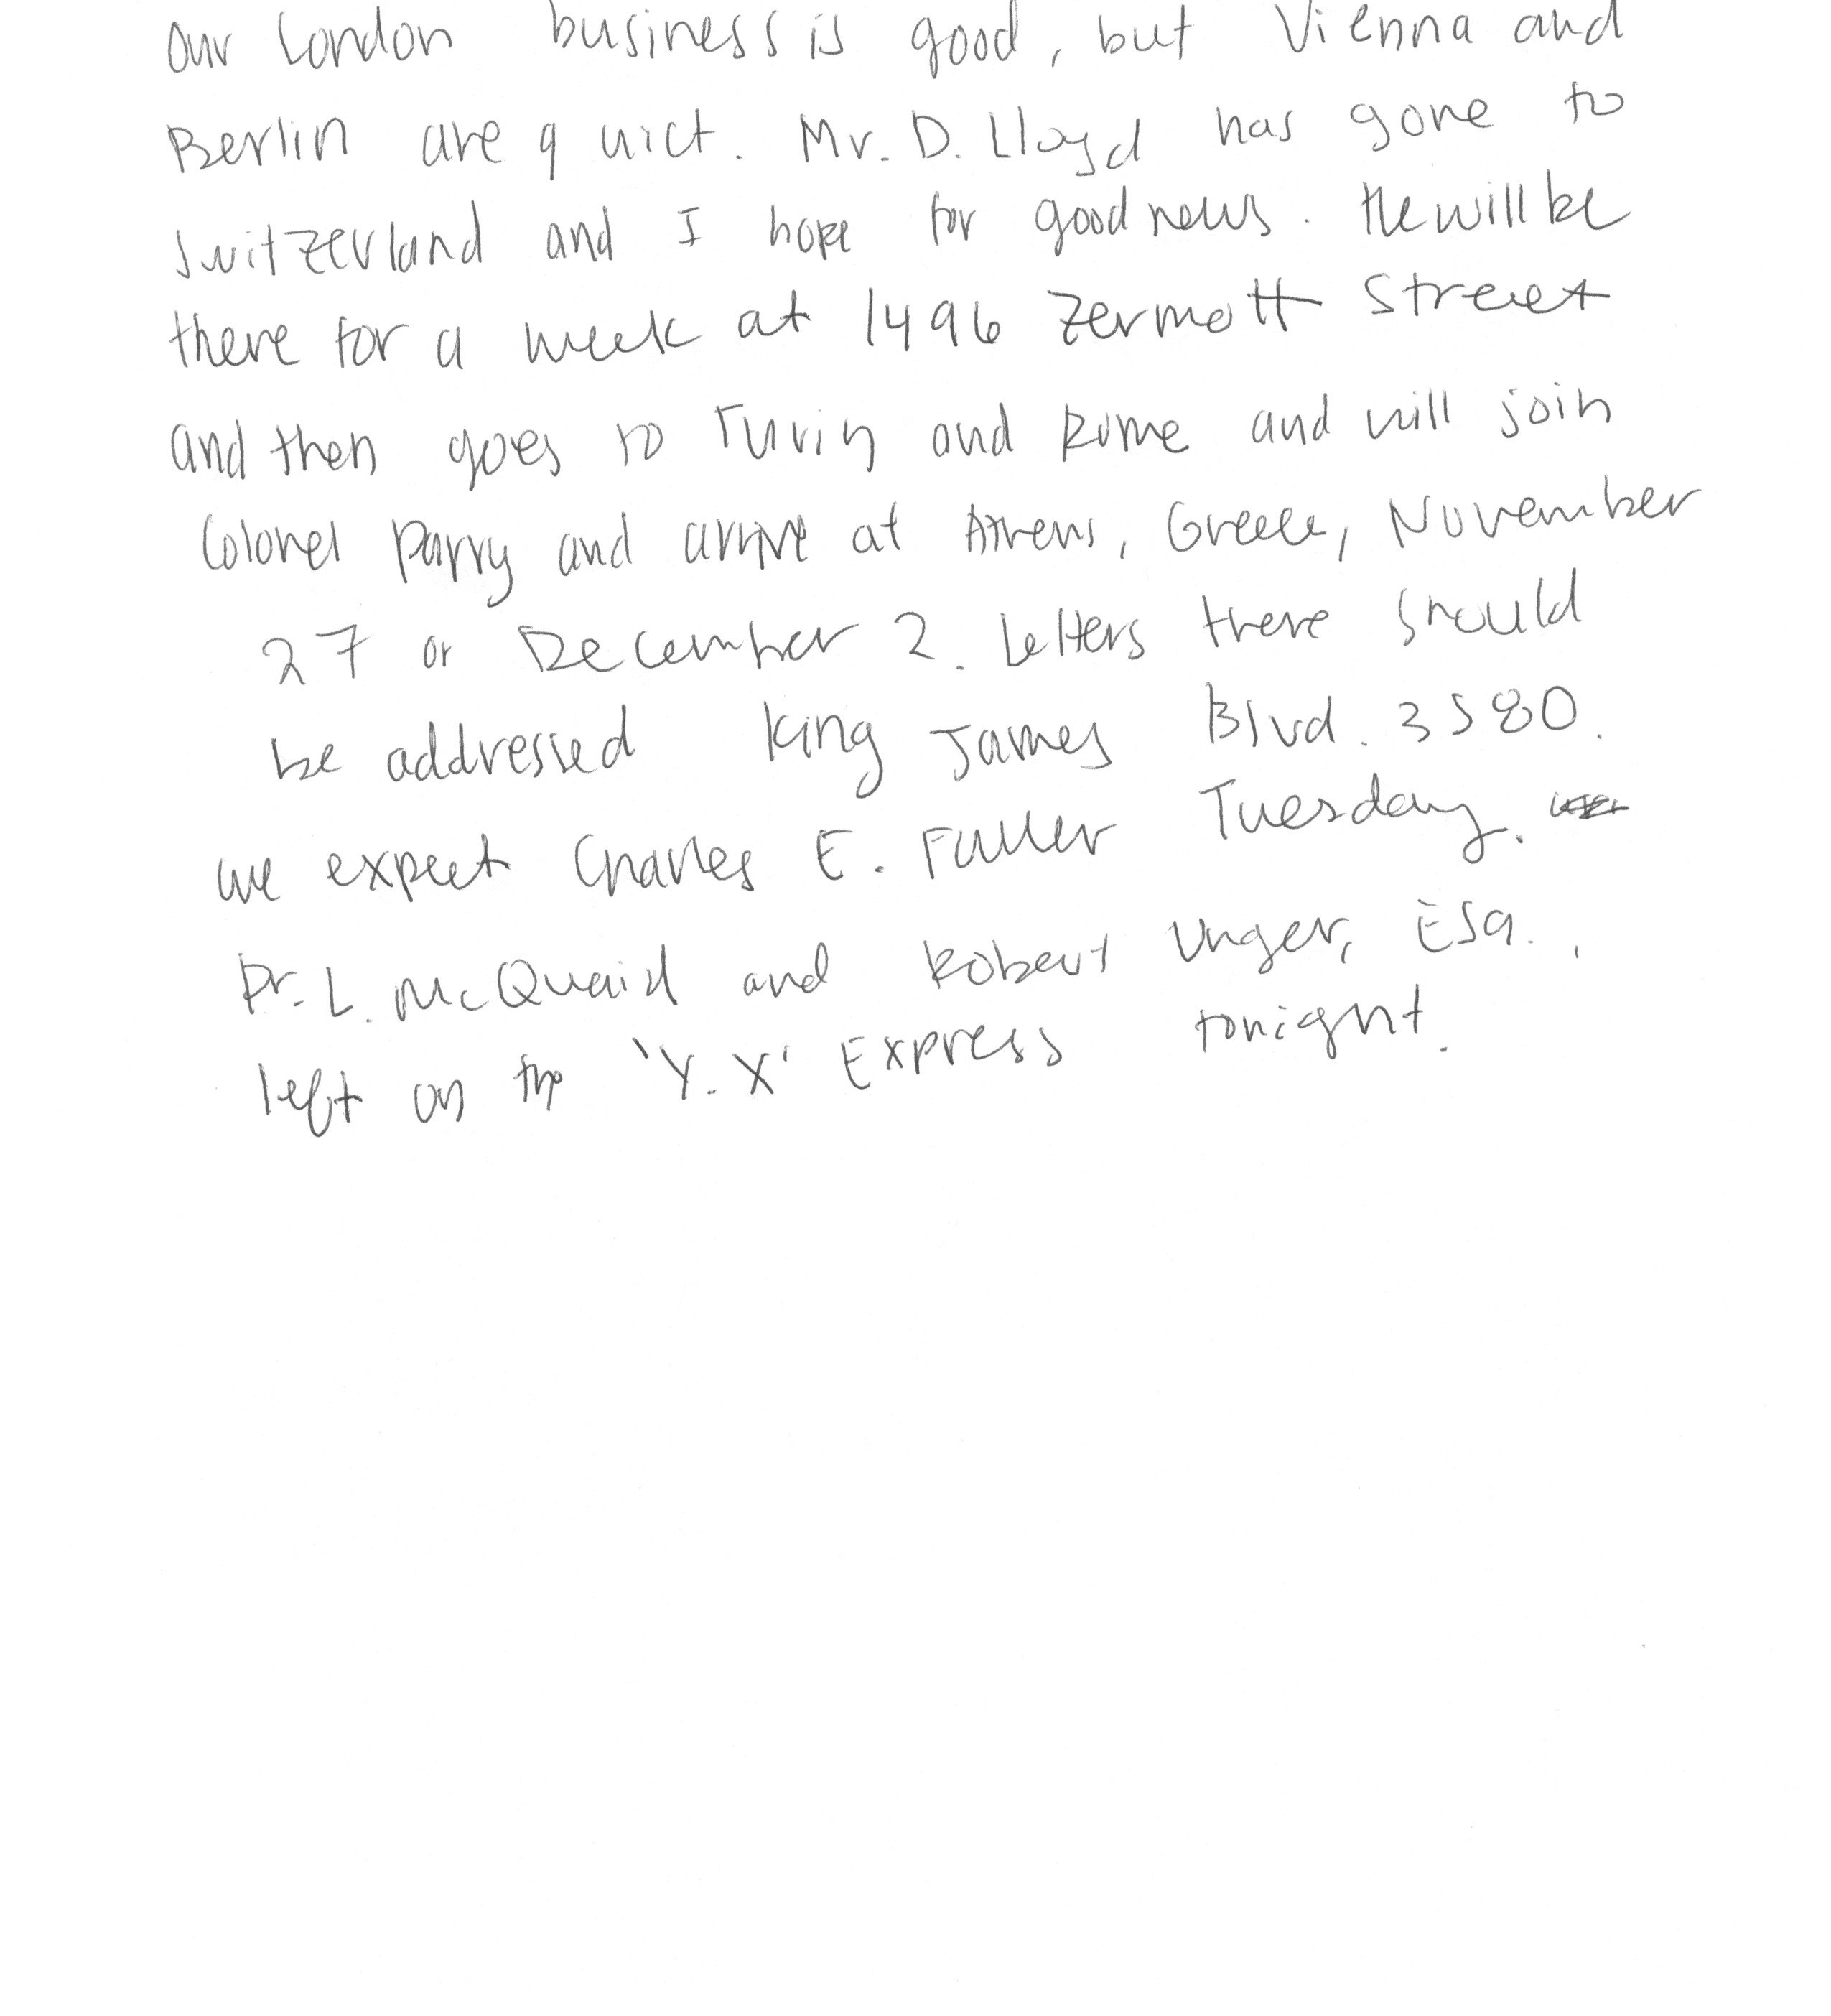 our London business is good, but Vienna and
Berlin are quiet. Mr. D. Lloyd has gone to
Switzerland and I hope for good news. He will be
there for a week at 1496 Zermott Street
and then goes to Turin and Rome and will join
Colonel Parry and arrive at Athens, Greece, November
27 or December 2. Letters there should
be addressed King James Blvd. 3580.
we expect Charles E. Fuller Tuesday.
Dr. L. McQuaid and Robert Unger, Esq.,
left on the 'Y.X' Express tonight.